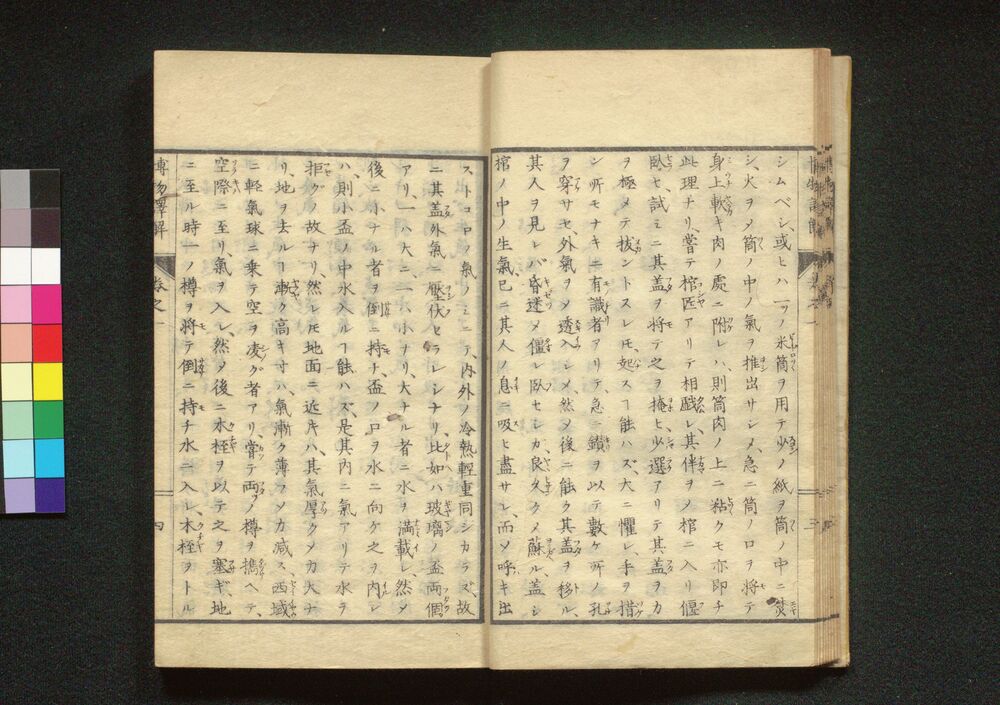 シムベシ、或ヒハ一ツノ氷筒ヲ用テ少ノ紙ヲ筒ノ中ニ焚
シ、火ヲ〆筒ノ中ノ氣ヲ推出サシメ、急ニ筒ノ口ヲ將テ
身上軟キ肉ノ處ニ附レハ、則筒肉ノ上ニ粘ク亦即チ
此理ナリ、嘗テ棺匠アリテ相戯レ其伴ヲ〆棺ニ入リ偃
臥セ、試ミニ其盖ヲ將テ之ヲ掩ヒ少選アリテ其盖ヲカ
ヲ極メテ拔ントスレ𪜈、起スヿ能ハズ、大ニ懼レ、手ヲ措
ン所モナキニ有識者アリテ、急ニ鑽ヲ以テ數ケ所ノ孔
ヲ穿サセ、外氣ヲ〆透入シメ、然〆後ニ能ク其盖ヲ移ル、
其人ヲ見レバ昏迷〆僵レ臥セシカ、良タク〆蘇ル、盖シ
棺ノ中ノ生氣、已ニ其人ノ息ニ吸ヒ盡サレ、而〆呼キ出
ストコロノ氣ノミニテ、内外ノ冷熱輕重同シカラズ、故
ニ其盖外氣ニ壓伏セラレシナリ、比如ハ玻璃ノ盃両個
アリ、一ハ大ニ、一ハ小ナリ、大ナル者ニ水ヲ満載レ、然〆
後ニ小ナル者ヲ倒ニ持チ、盃ノ口ヲ水ニ向ケ之ヲ内レ
ハ、則小盃ノ中水入ルヿ能ハズ、是其内ニ氣アリテ水ヲ
拒グノ故ナリ、然レ𪜈地面ニ近ケハ、其氣厚ク〆力大ナ
リ、地ヲ去ルヿ漸ク高キ寸ハ、氣漸ク薄フ〆力减ス、西域
ニ軽氣球ニ乗テ空ヲ凌グ者アリ、嘗テ両ノ樽ヲ携ヘテ、
空際ニ至リ、氣ヲ入レ、然〆後ニ木桎ヲ以テ之ヲ塞ギ、地
ニ至ル時一ノ樽ヲ將テ倒ニ持チ水ニ入レ、木桎ヲトル
博物譯解
卷之一
四